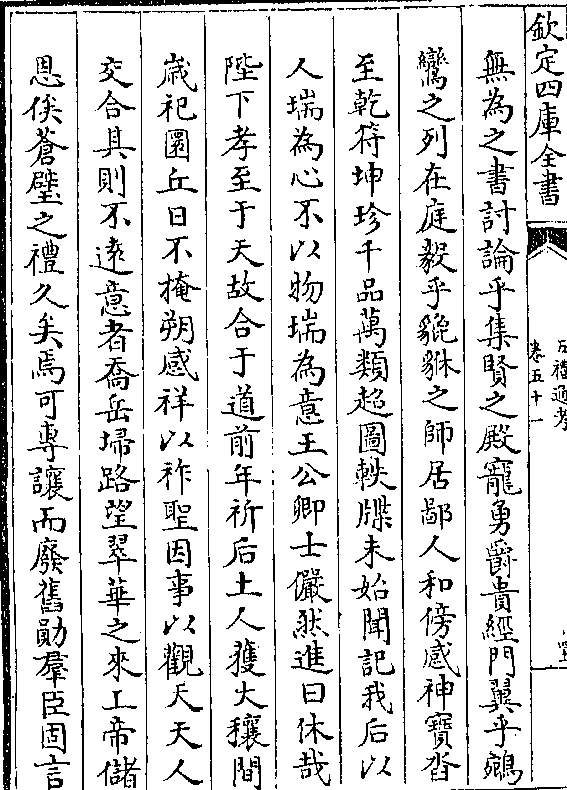 欽定四庫全書
五禮通考
卷五十一
無為之書討論乎集賢之殿寵勇爵貴經門翼乎鵷
鸞之列在庭毅乎貔貅之師居鄙人和傍感神寳沓
至乾符坤珍千品萬類超圖軼牒未始聞記我后以
人瑞為心不以物瑞為意王公卿士儼然進曰休哉
陛下孝至于天故合于道前年祈后土人獲大穰間
歳祀圜丘日不掩朔感祥以祚聖因事以觀天天人
交合其則不逺意者喬岳埽路望翠華之來上帝儲
恩俟蒼璧之禮久矣焉可專讓而廢舊勛羣臣固言